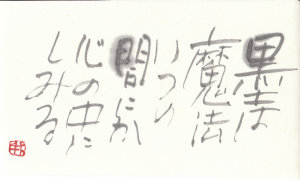 墨は
魔法
いつの
間にか
心の中に
しみる